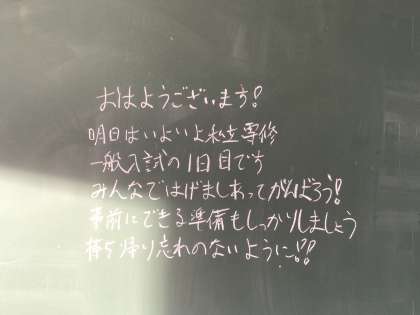 おはようございます!
明日はいよいよ私立専修
一般入試の1日目です
みんなではげましあってがんばろう!
事前にできる準備もしっかりしましょう
持ち帰り忘れのないように!!